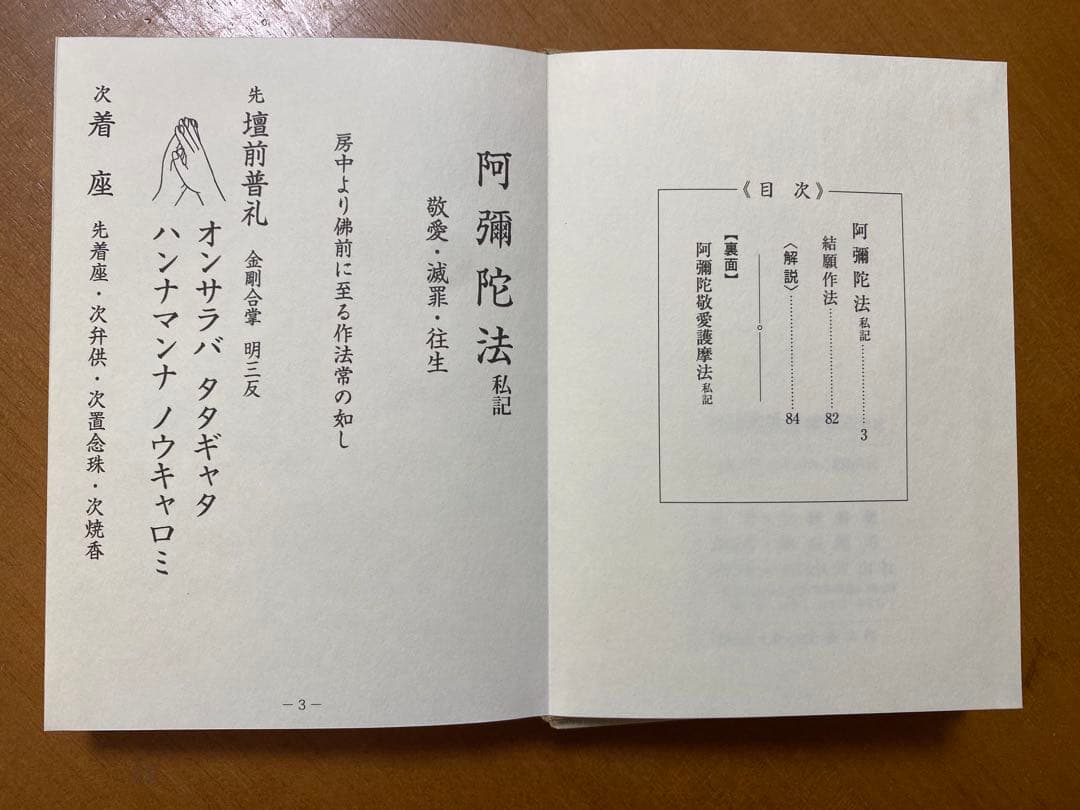 《目次》
阿彌陀法 私記……………3
結願作法……………82
〈解説〉……………84
【裏面】
阿彌陀敬愛護摩法 私記
阿彌陀法 私記
敬愛・滅罪・往生
房中より佛前に至る作法常の如し
先 壇前普礼 金剛合掌 明三反
オンサラバ タタギャタ
ハンナマンナ ノウキャロミ
次 着座 先着座・次弁供・次置念珠・次焼香
―3―